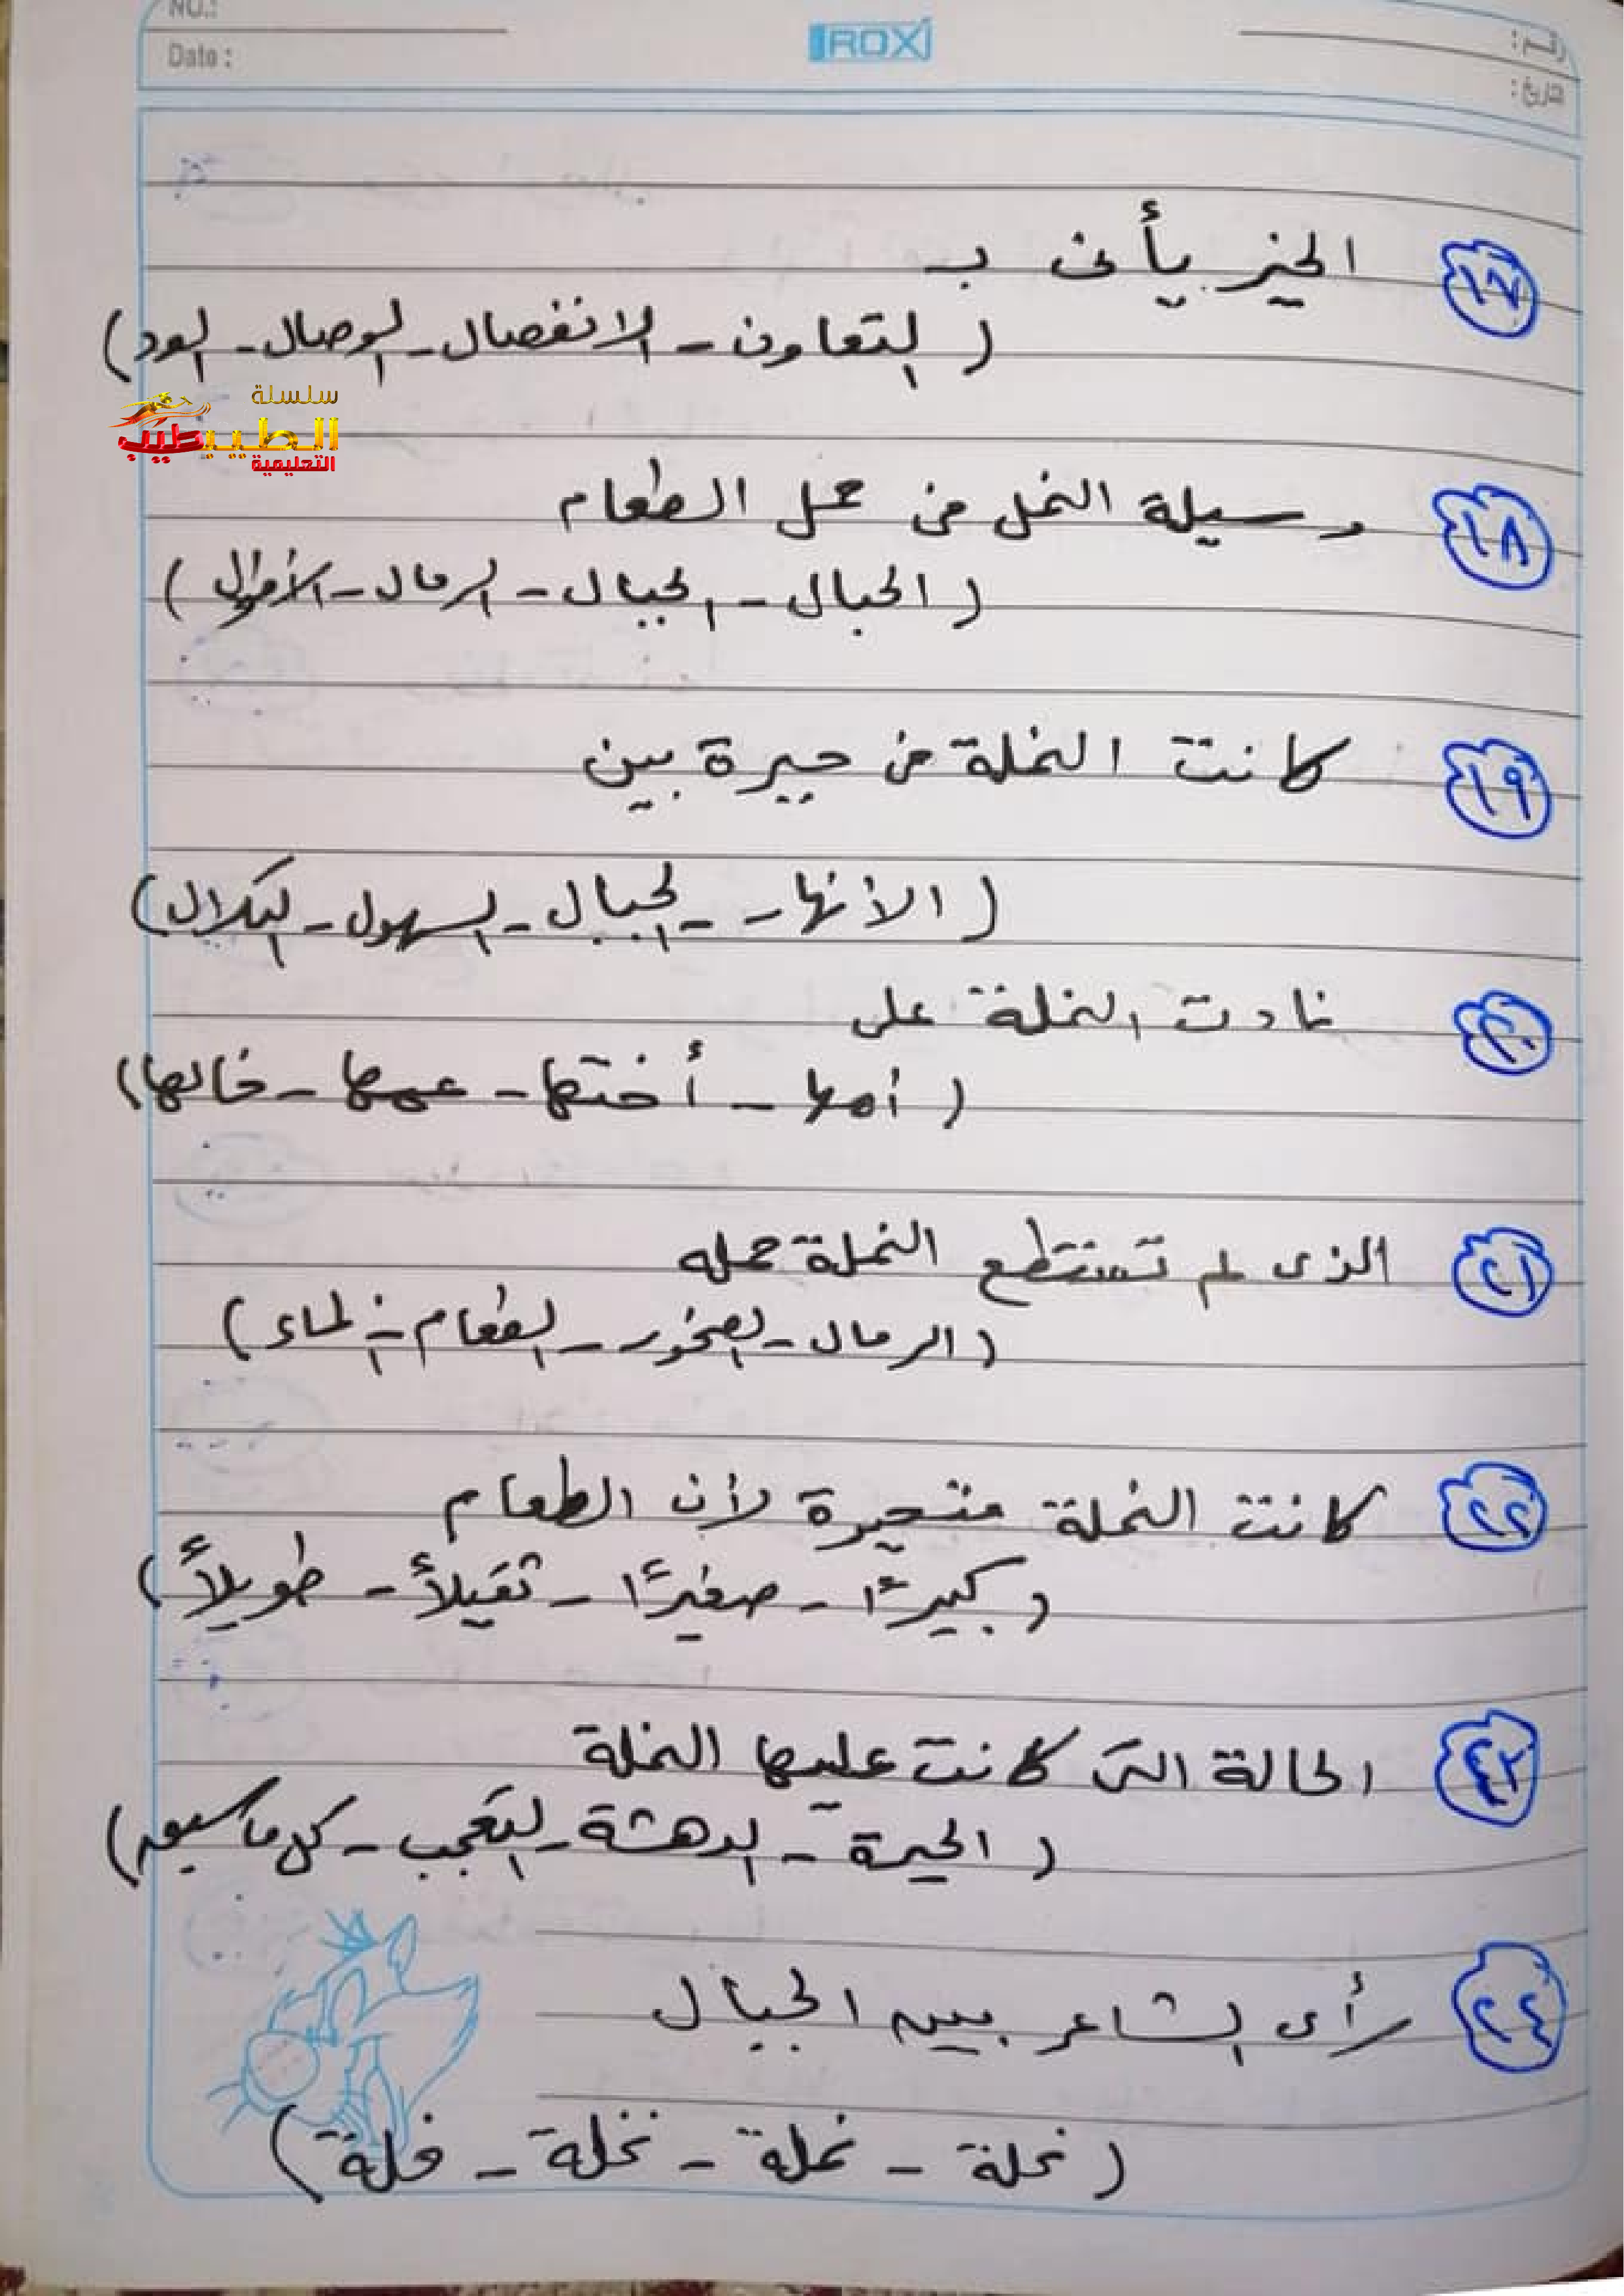 NO.:
Date :
ROX
رقم :
تاريخ :
١٧ الخير يأتى بـ
( التعاون - الانفصال - الوصال - العدد )
سلسلة
الطبيب طبيب
التعليمية
١٨ وسيلة النمل فى حمل الطعام
( الحبال - الجبال - الرمال - الأموال )
١٩ كانت النملة فى حيرة بين
( الأنهار - الجبال - السهول - التلال )
٢٠ نادت النملة على
( أمها - أختها - عمها - خالها )
٢١ الذى لم تستطع النملة حمله
( الرمال - الصخور - الطعام - الماء )
٢٢ كانت النملة متحيرة لأن الطعام
( كبيرًا - صغيرًا - ثقيلاً - طويلاً )
٢٣ الحالة التى كانت عليها النملة
( الحيرة - الدهشة - التعجب - كل ما سبق )
٢٤ رأى الشاعر بين الجبال
( نحلة - نملة - نخلة - فلة )